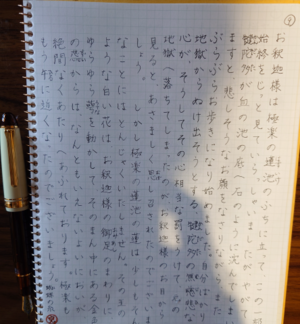 お釈迦様は極楽の蓮池のふちに立って、この一部
始終をじっと見ていらっしゃいましたが、やがて
陀多が血の池の底へ石のように沈んでしまい
ますと、悲しそうなお顔をなさりながら、また
ぶらぶらお歩きになり始めました。自分ばかり
地獄からぬけ出そうとする、陀多の無慈悲な
心が、そうしてその心相当な罰をうけて、元の
地獄へ落ちてしまったのが、お釈迦様のお目から
見ると、あさましく思し召されたのでございま
しょう。しかし極楽の蓮池の蓮は、少しもそん
なことにはとんじゃくいたしません。その玉の
ような白い花は、お釈迦様の御足のまわりに、
ゆらゆら萼を動かして、そのまん中にある金色
の蕊からは、なんともいえないよいにおいが、
絶間なくあたりへあふれております。極楽も
もう午に近くなったのでございましょう。